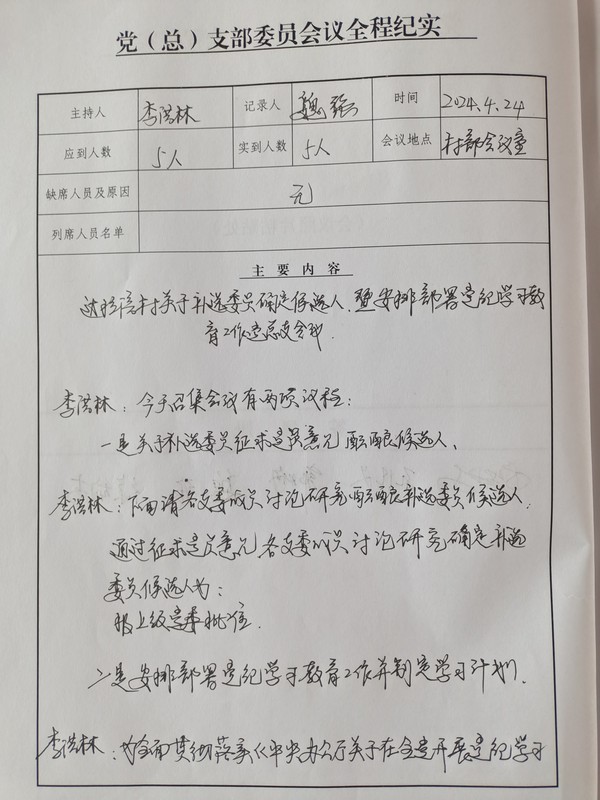 党（总）支部委员会议全程纪实
主持人 李洪林 记录人 魏强 时间 2024.4.24
应到人数 5人 实到人数 5人 会议地点 村部会议室
缺席人员及原因 无
列席人员名单
主要内容
村关于补选委员确定候选人,暨安排部署党纪学习教
育工作党总支会议
李洪林：今天召集会议有两项议程：
一是关于补选委员征求党员意见酝酿候选人、
李洪林：下面请各支委成员讨论研究酝酿补选委员候选人
通过征求党员意见,各支委成员讨论研究确定补选
委员候选人为：
报上级党委批准.
二是安排部署党纪学习教育工作并制定学习计划.
李洪林：为全面贯彻落实《中央办公厅关于在全党开展党纪学习